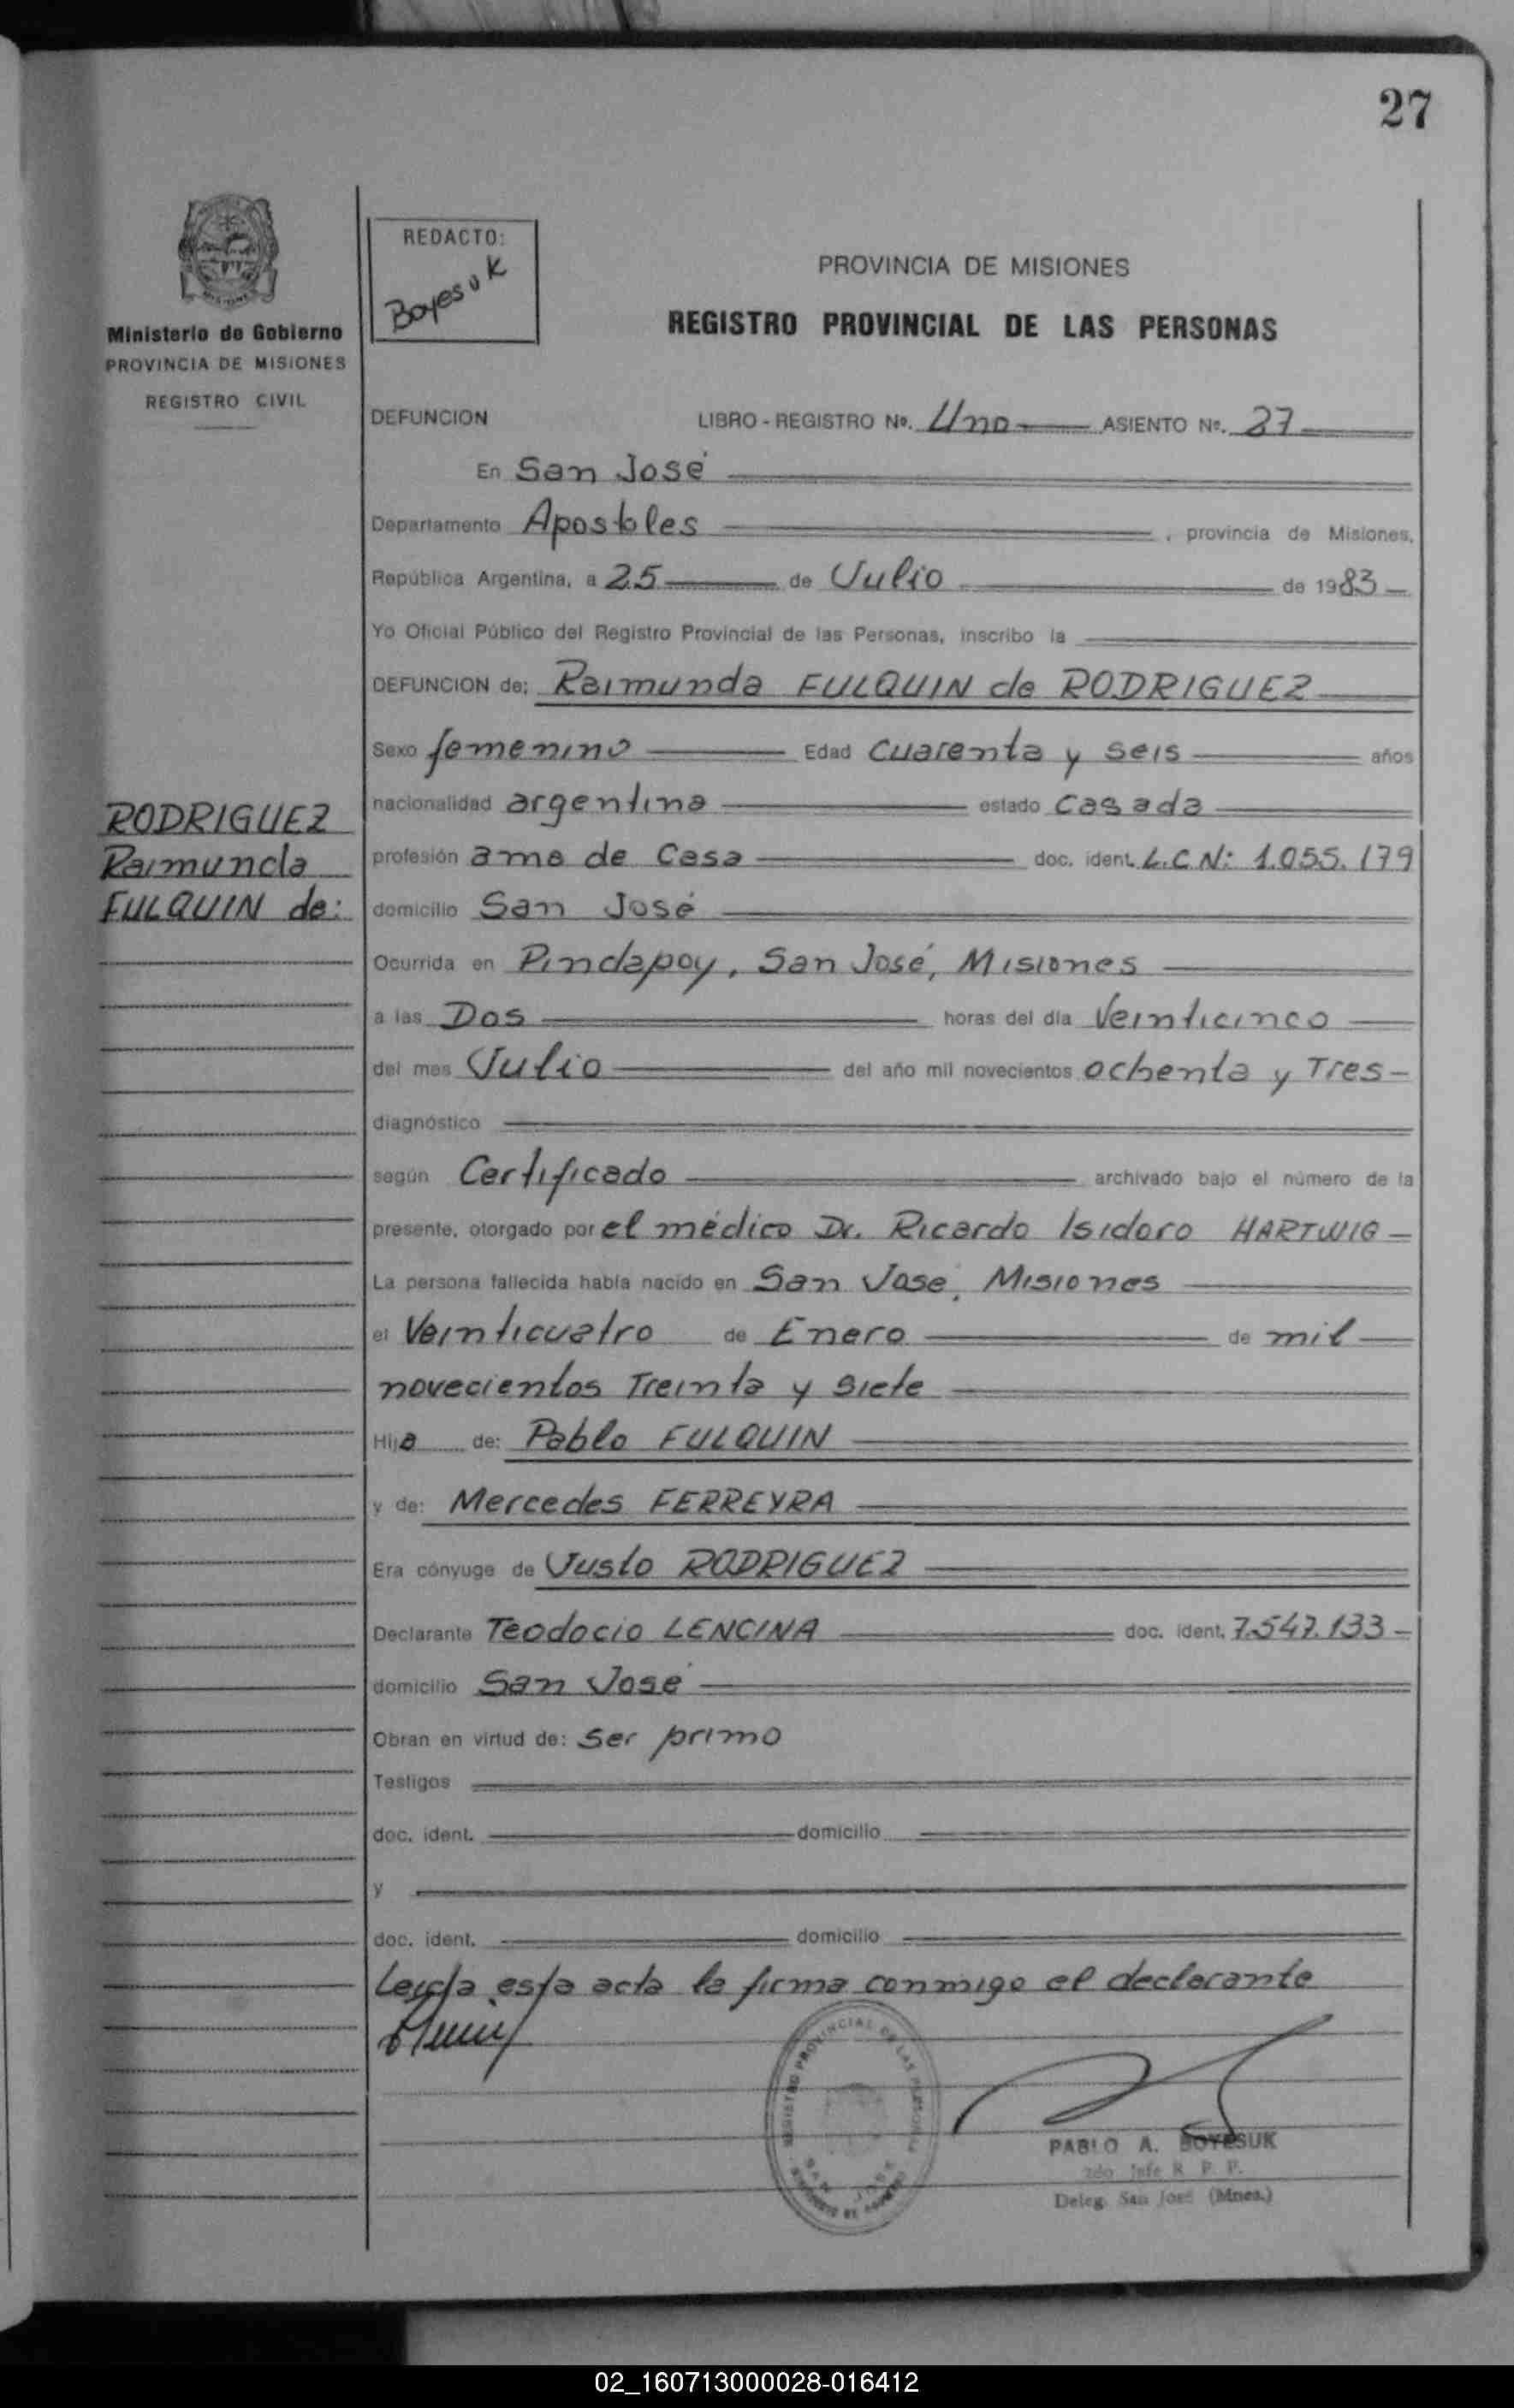 27
REDACTO:
Boyesuk
PROVINCIA DE MISIONES
REGISTRO PROVINCIAL DE LAS PERSONAS
Ministerio de Gobierno
PROVINCIA DE MISIONES
REGISTRO CIVIL
DEFUNCION LIBRO - REGISTRO Nº. Uno ASIENTO Nº. 27
En San José
Departamento Apostoles, provincia de Misiones,
República Argentina, a 25 de Julio de 1983
Yo Oficial Público del Registro Provincial de las Personas, inscribo la
DEFUNCION de: Raimunda FULQUIN de RODRIGUEZ
Sexo femenino Edad cuarenta y seis años
nacionalidad argentina estado casada
RODRIGUEZ
Raimunda
FULQUIN de:
profesión ama de casa doc. ident. L.C.N: 1.055.179
domicilio San José
Ocurrida en Pindapoy, San José, Misiones
a las Dos horas del día Veinticinco
del mes Julio del año mil novecientos ochenta y Tres
diagnóstico
según Certificado archivado bajo el número de la
presente, otorgado por el médico Dr. Ricardo Isidoro HARTWIG
La persona fallecida había nacido en San Jose, Misiones
el Veinticuatro de Enero de mil
novecientos Treinta y siete
Hija de: Pablo FULQUIN
y de: Mercedes FERREYRA
Era cónyuge de Justo RODRIGUEZ
Declarante Teodocio LENCINA doc. ident. 7.547.133
domicilio San José
Obran en virtud de: ser primo
Testigos
doc. ident. domicilio
y
doc. ident. domicilio
Leida esta acta la firma conmigo el declarante
REGISTRO PROVINCIAL DE LAS PERSONAS
SAN JOSE
PABLO A. BOYESUK
2do Jefe R. P. P.
Deleg. San José (Mnes.)
02_160713000028-016412